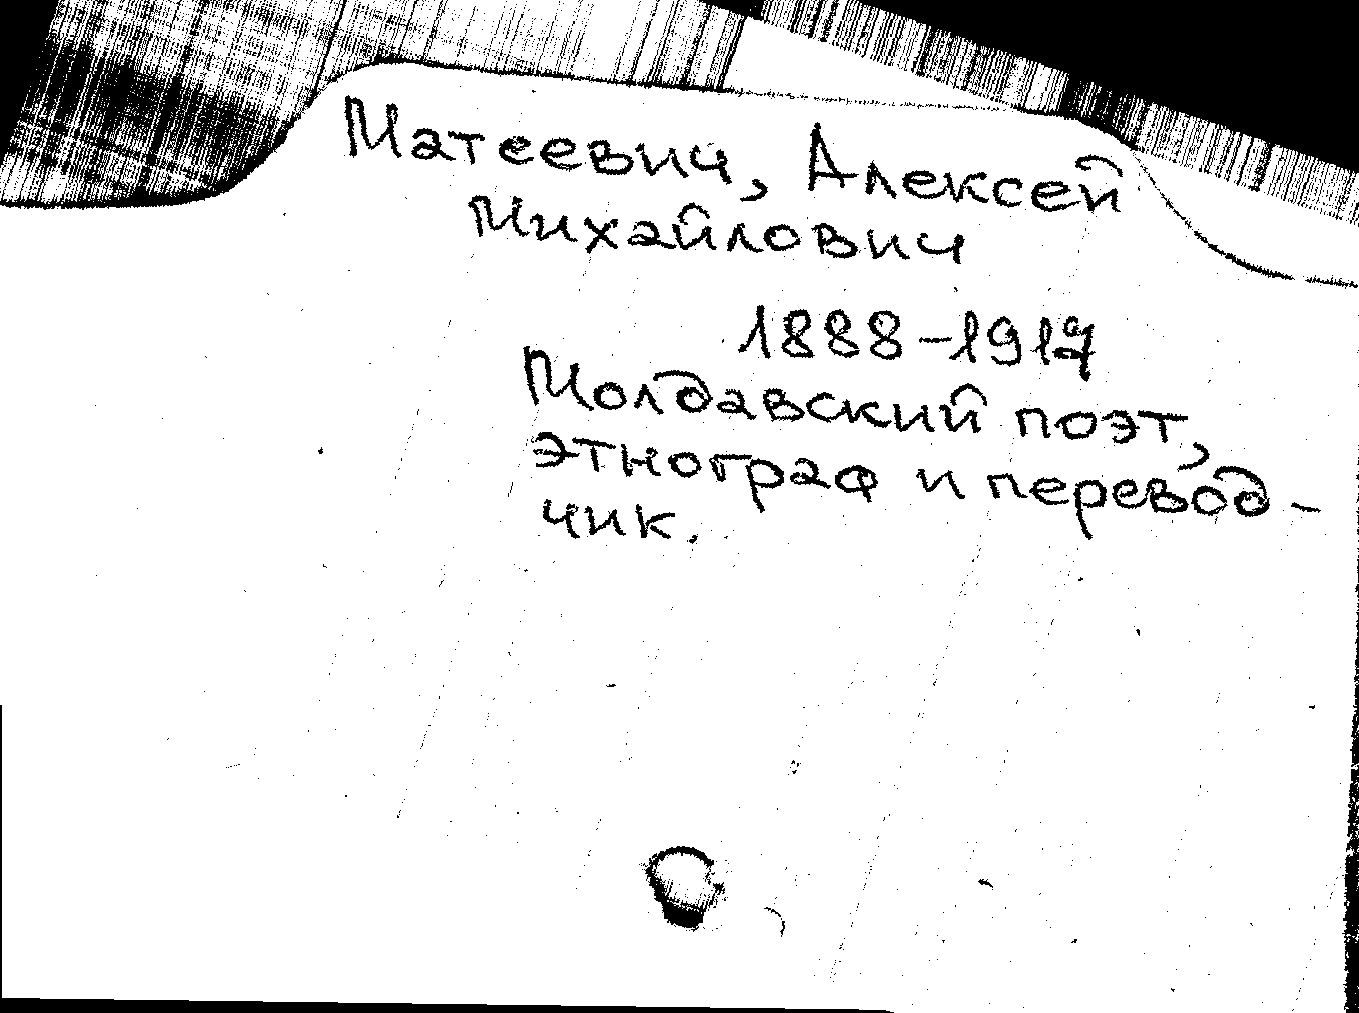 Матеевич, Алексей
Михайлович
1888-1917
Молдавский поэт,
этнограф и перевод-
чик.